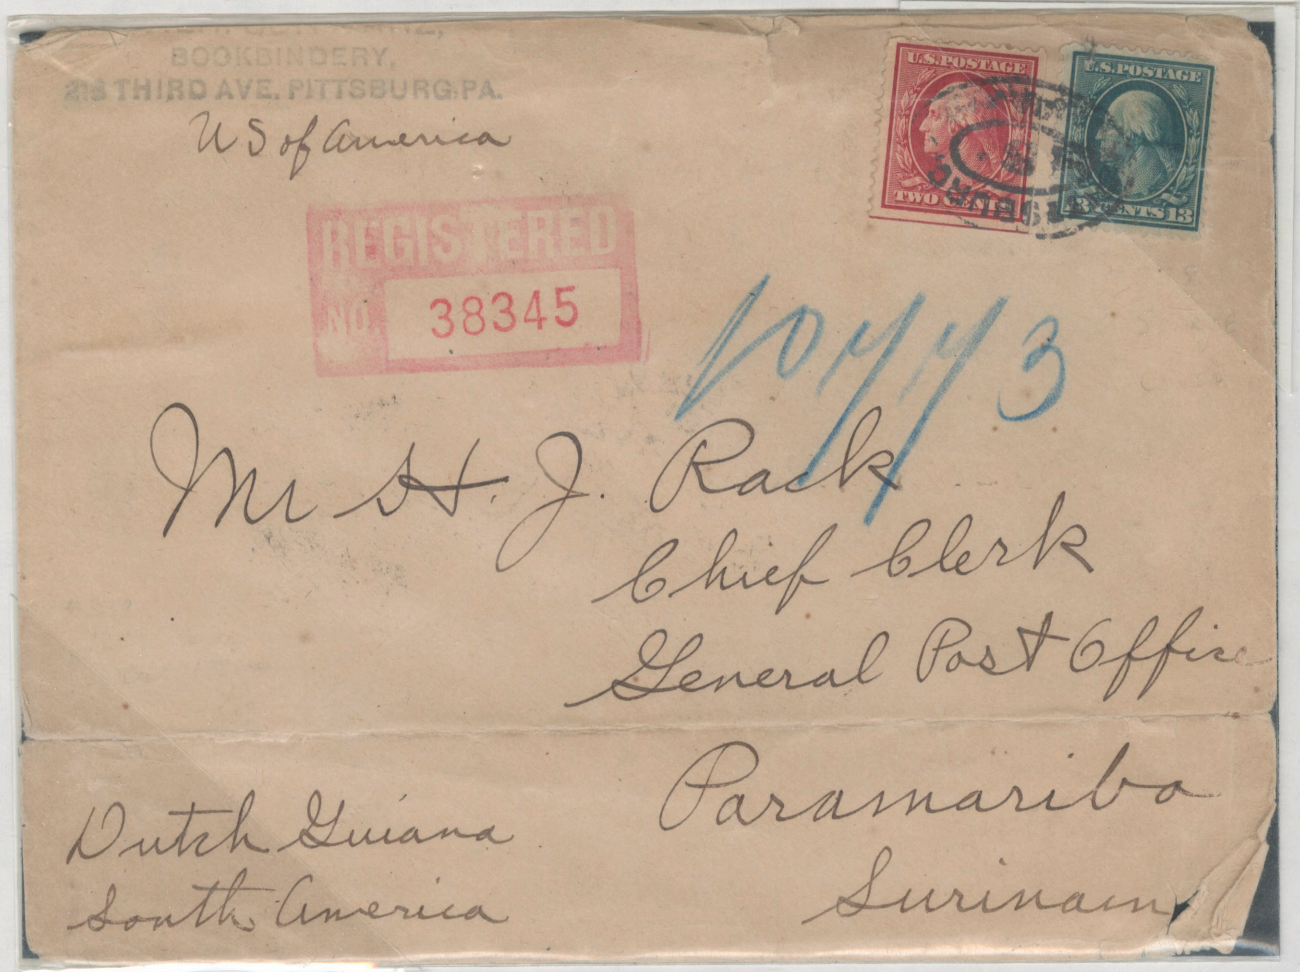 BOOKBINDERY,
THIRD AVE. PITTSBURG, PA.
US of America
U.S. POSTAGE
TWO CENTS
U.S. POSTAGE
13 CENTS 13
REGISTERED
NO. 38345
Mr H. J. Rack
Chief Clerk
General Post Office
Paramaribo
Surinam
Dutch Guiana
South America